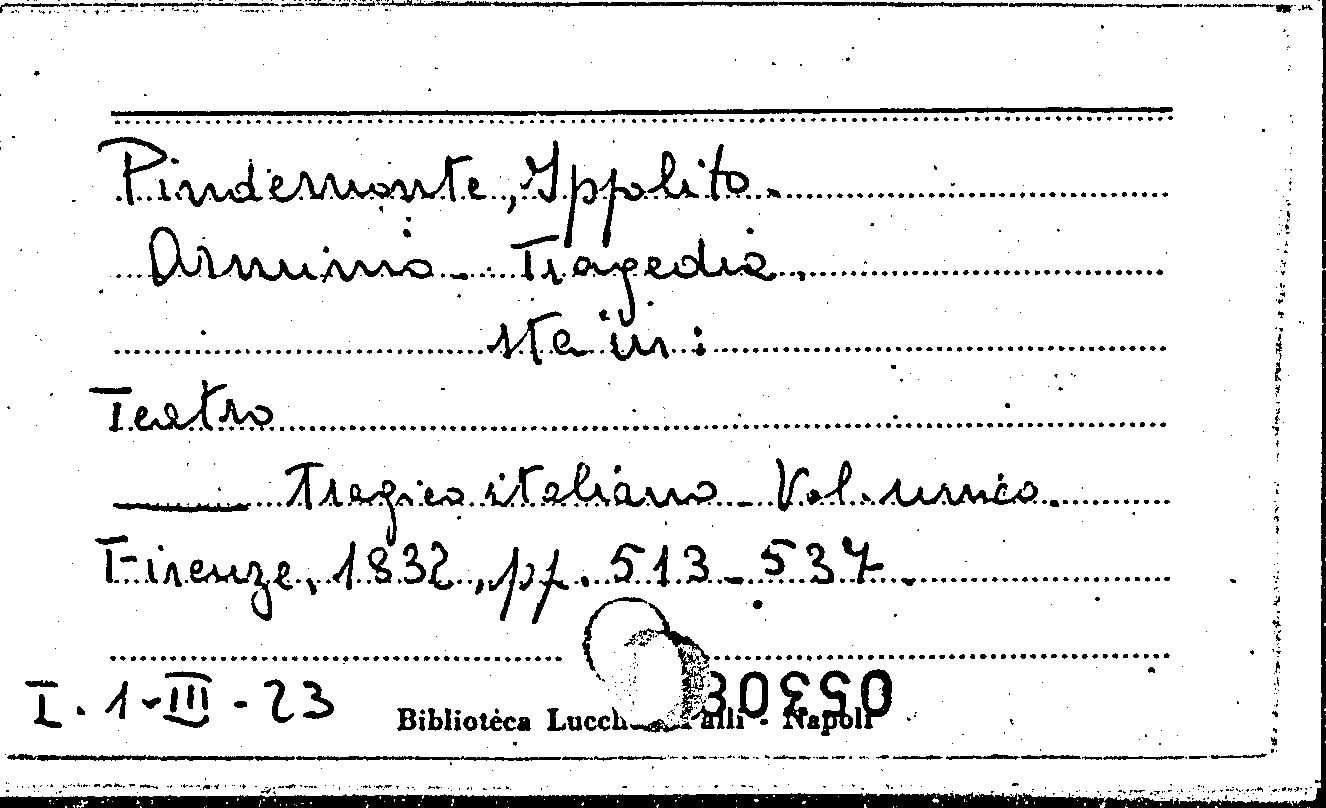 Pindemonte, Ippolito.
Arminio - Tragedia.
sta in:
Teatro
tragico italiano - Vol. unico.
Firenze, 1832, pp. 513 - 537.
I. 1 - III - 23
Biblioteca Lucch alli - Napoli